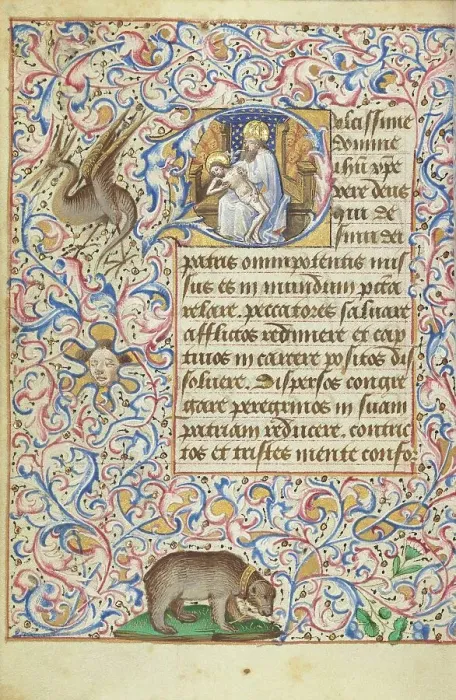 Dulcissime
domine
ihu xpe
vere deus
qui de
sinu dei
patris omnipotentis mis
sus es in mundum pcca
relaxare. peccatores saluare
afflictos redimere et cap
tiuos in carcere positos dis
soluere. Dispersos congre
gare peregrinos in suam
patriam reducere. contric
tos et tristes mente confor